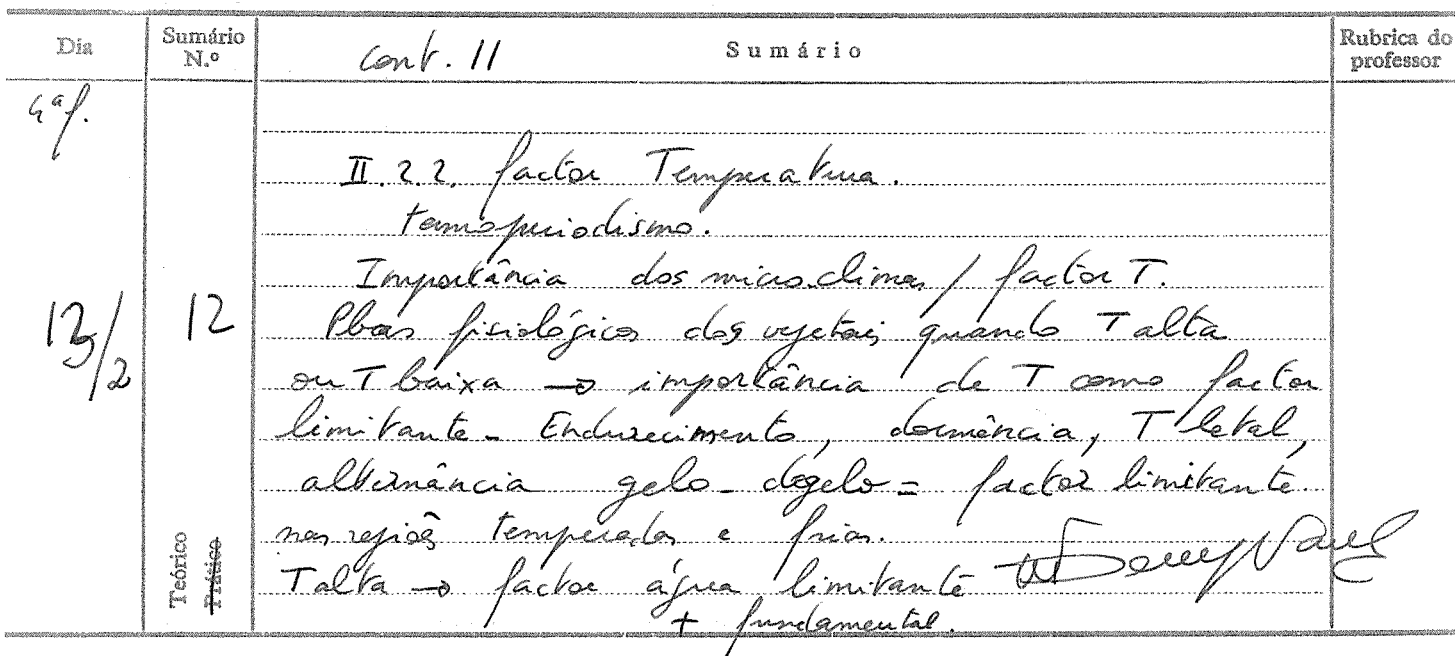 Dia
Sumário N.º
cont. II
Sumário
Rubrica do professor
4ª f.
13/2
12
Teórico
Prático
II.2.2. factor Temperatura.
termoperiodismo.
Importância dos microclimas / factor T.
Pbas fisiológicos dos vegetais quando T alta
ou T baixa → importância de T como factor
limitante - Endurecimento, dormência, T letal,
alternância gelo-degelo = factor limitante
nas regiões temperadas e frias.
T alta → factor água limitante
+ fundamental.